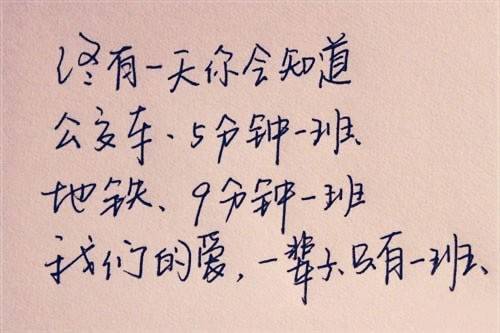 终有一天你会知道
公交车、5分钟一班、
地铁、9分钟一班
我们的爱，一辈子只有一班、